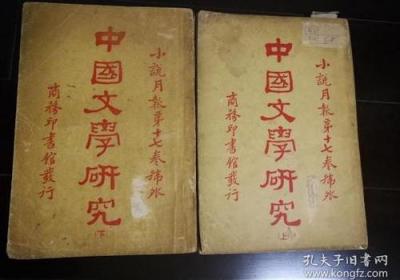 小說月報第十七卷號外
中國文學研究
(上)
商務印書館發行
小說月報第十七卷號外
中國文學研究
(下)
商務印書館發行
孔夫子旧书网